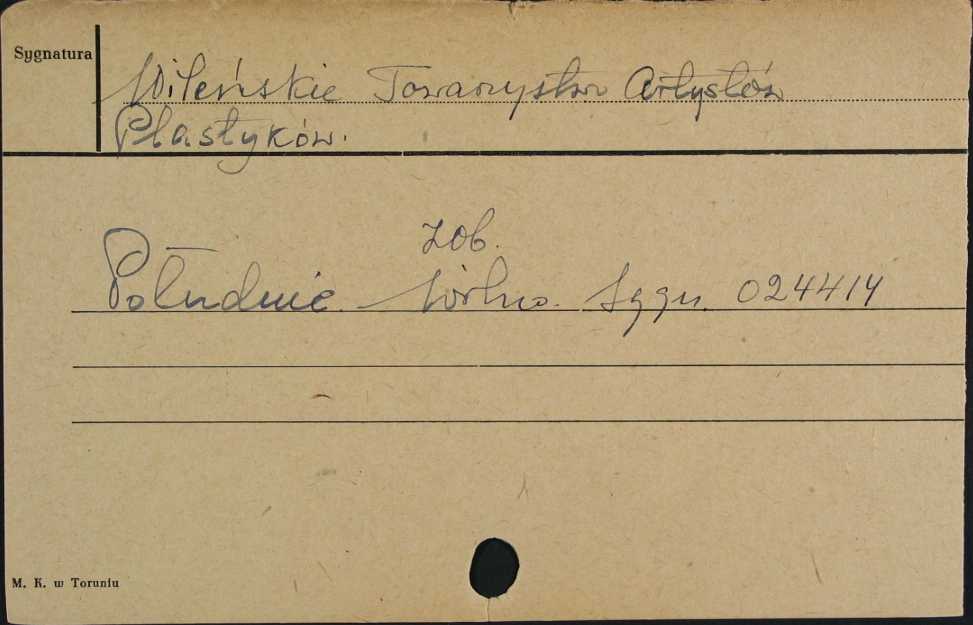 Sygnatura
Wileńskie Towarzystwo Artystów
Plastyków.
zob.
Południe. - Wilno. Sygn. 024414
M. K. w Toruniu